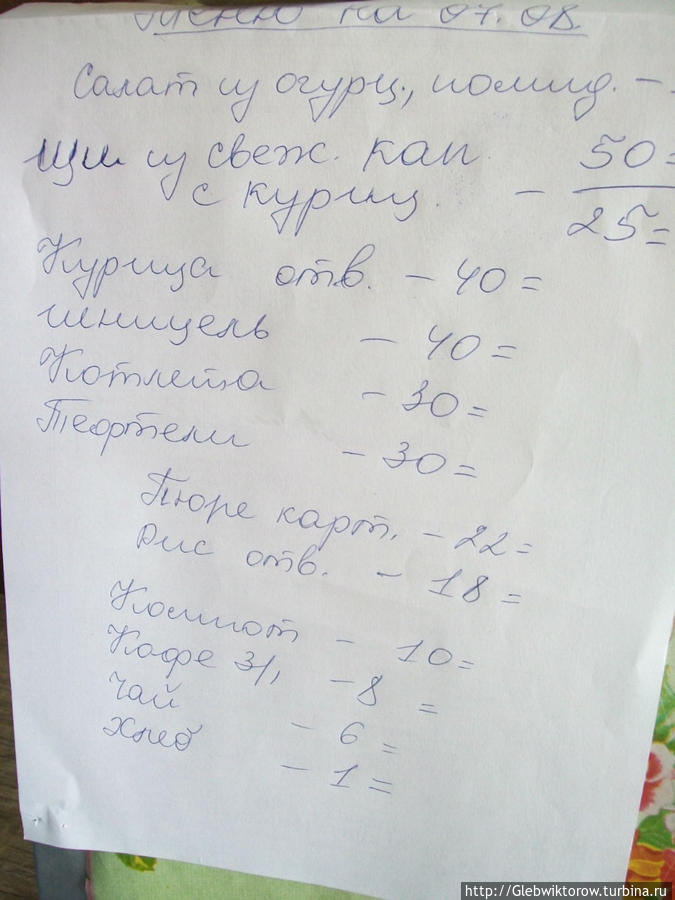 Меню на 07.08.
Салат из огурц., помид. -
Щи из свеж. кап 50=
с куриц. - 25=
Курица отв. - 40=
Шницель - 40=
Котлета - 30=
Тефтели - 30=
Пюре карт. - 22=
Рис отв. - 18=
Компот - 10=
Кофе 3/1 - 8=
Чай - 6=
Хлеб - 1=
http://Glebwiktorow.turbina.ru